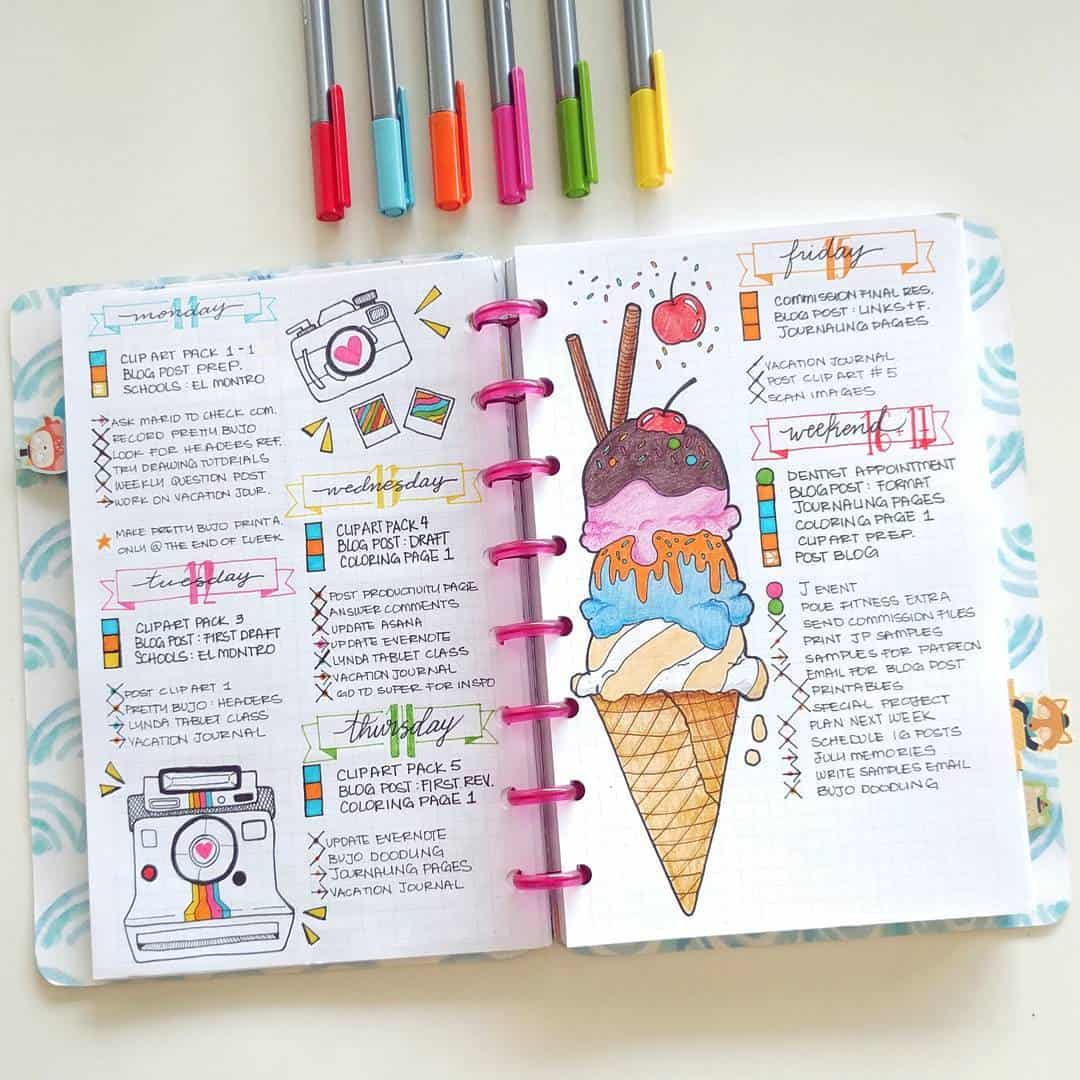 monday 11
CLIP ART PACK 1-1
BLOG POST PREP.
SCHOOLS: EL MONTRO
ASK MARID TO CHECK COM.
RECORD PRETTY BUJO
LOOK FOR HEADERS REF.
TRY DRAWING TUTORIALS
WEEKLY QUESTION POST
WORK ON VACATION JOUR.
MAKE PRETTY BUJO PRINTA.
ONLY @ THE END OF WEEK
tuesday 12
CLIPART PACK 3
BLOG POST: FIRST DRAFT
SCHOOLS: EL MONTRO
POST CLIP ART 1
PRETTY BUJO: HEADERS
LYNDA TABLET CLASS
VACATION JOURNAL
wednesday 13
CLIPART PACK 4
BLOG POST: DRAFT
COLORING PAGE 1
POST PRODUCTIVITY PAGE
ANSWER COMMENTS
UPDATE ASANA
UPDATE EVERNOTE
LYNDA TABLET CLASS
VACATION JOURNAL
GO TO SUPER FOR INSPO
thursday
CLIPART PACK 5
BLOG POST: FIRST REV.
COLORING PAGE 1
UPDATE EVERNOTE
BUJO DOODLING
JOURNALING PAGES
VACATION JOURNAL
friday 15
COMMISSION FINAL RES.
BLOG POST: LINKS+F.
JOURNALING PAGES
VACATION JOURNAL
POST CLIPART #5
SCAN IMAGES
weekend 16+17
DENTIST APPOINTMENT
BLOG POST: FORMAT
JOURNALING PAGES
COLORING PAGE 1
CLIPART PREP.
POST BLOG
J EVENT
POLE FITNESS EXTRA
SEND COMMISSION FILES
PRINT JP SAMPLES
SAMPLES FOR PATREON
EMAIL FOR BLOG POST
PRINTABLES
SPECIAL PROJECT
PLAN NEXT WEEK
SCHEDULE IG POSTS
JULY MEMORIES
WRITE SAMPLES EMAIL
BUJO DOODLING